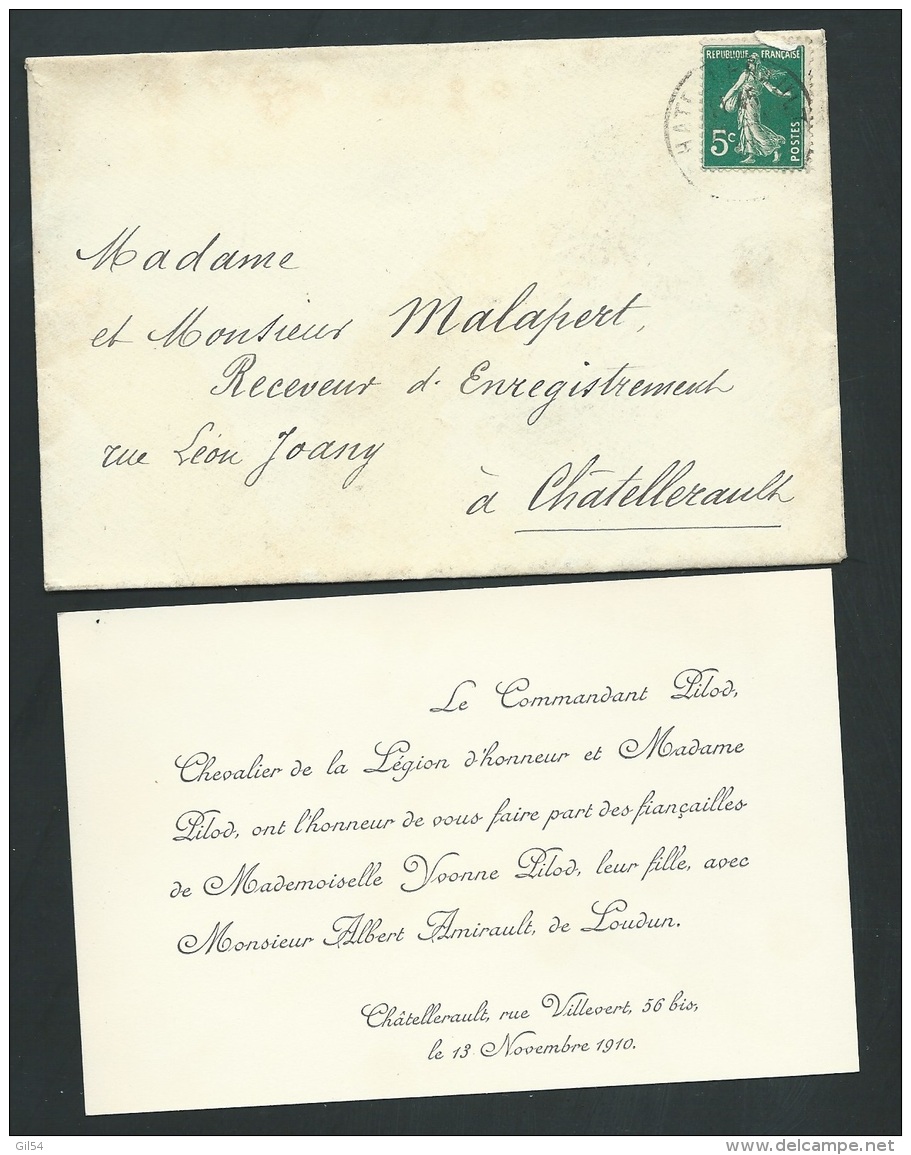 REPUBLIQUE FRANÇAISE
5c
POSTES
Madame
et Monsieur Malapert,
Receveur d. Enregistrement
rue Léon Joany
à Châtellerault
Le Commandant Pilod,
Chevalier de la Légion d'honneur et Madame
Pilod, ont l'honneur de vous faire part des fiançailles
de Mademoiselle Yvonne Pilod, leur fille, avec
Monsieur Albert Amirault, de Loudun.
Châtellerault, rue Villevert, 56 bis,
le 13 Novembre 1910.
Gil54
delcampe.net